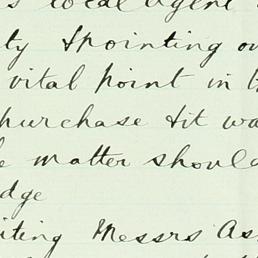 s local agent
ty & pointing ou
vital point in
purchase & it wa
e matter should
dge
iting Messrs As